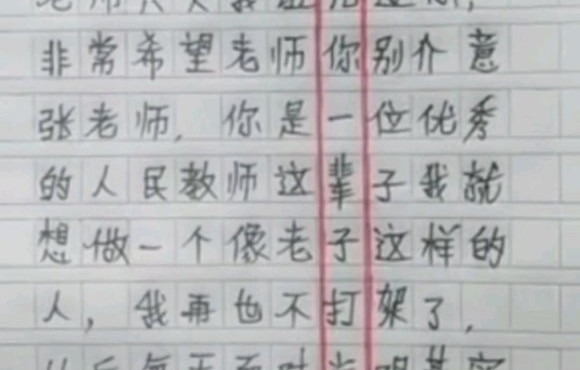 非常希望老师你别介意
张老师，你是一位优秀
的人民教师这辈子我就
想做一个像老子这样的
人，我再也不打架了，